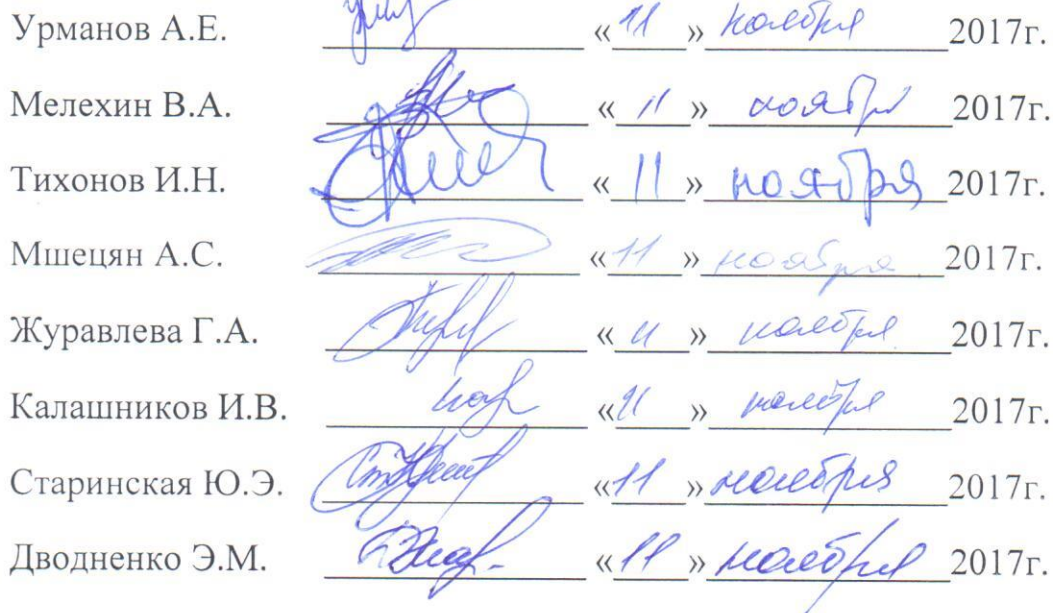 Урманов А.Е. «11» ноября 2017г.
Мелехин В.А. «11» ноября 2017г.
Тихонов И.Н. «11» ноября 2017г.
Мшецян А.С. «11» ноября 2017г.
Журавлева Г.А. «11» ноября 2017г.
Калашников И.В. «11» ноября 2017г.
Старинская Ю.Э. «11» ноября 2017г.
Дводненко Э.М. «11» ноября 2017г.